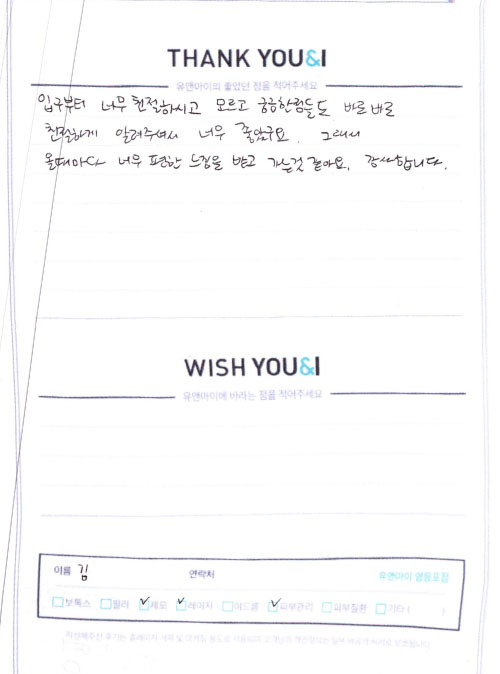 THANK YOU&I
유앤아이의 좋았던 점을 적어주세요
입구부터 너무 친절하시고 모르고 궁금한점들도 바로바로
친절하게 알려주셔서 너무 좋았구요. 그래서
올때마다 너무 편한 느낌을 받고 가는것 같아요. 감사합니다.
WISH YOU&I
유앤아이에 바라는 점을 적어주세요
이름 김 연락처 유앤아이 영등포점
보톡스 필러 제모 레이저 여드름 피부관리 피부질환 기타 ( )
작성해주신 후기는 홈페이지 게재 및 마케팅 용도로